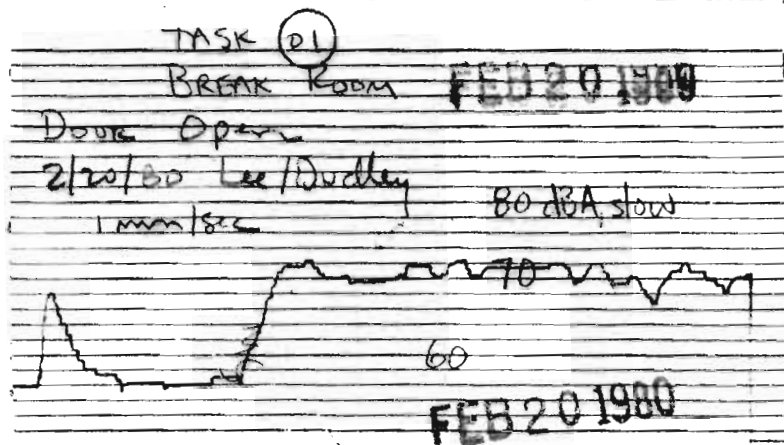 TASK 01
BREAK ROOM
FEB 20 1980
Door Open
2/20/80 Lee/Dudley
80 dBA, slow
1 mm/sec
70
60
FEB 20 1980